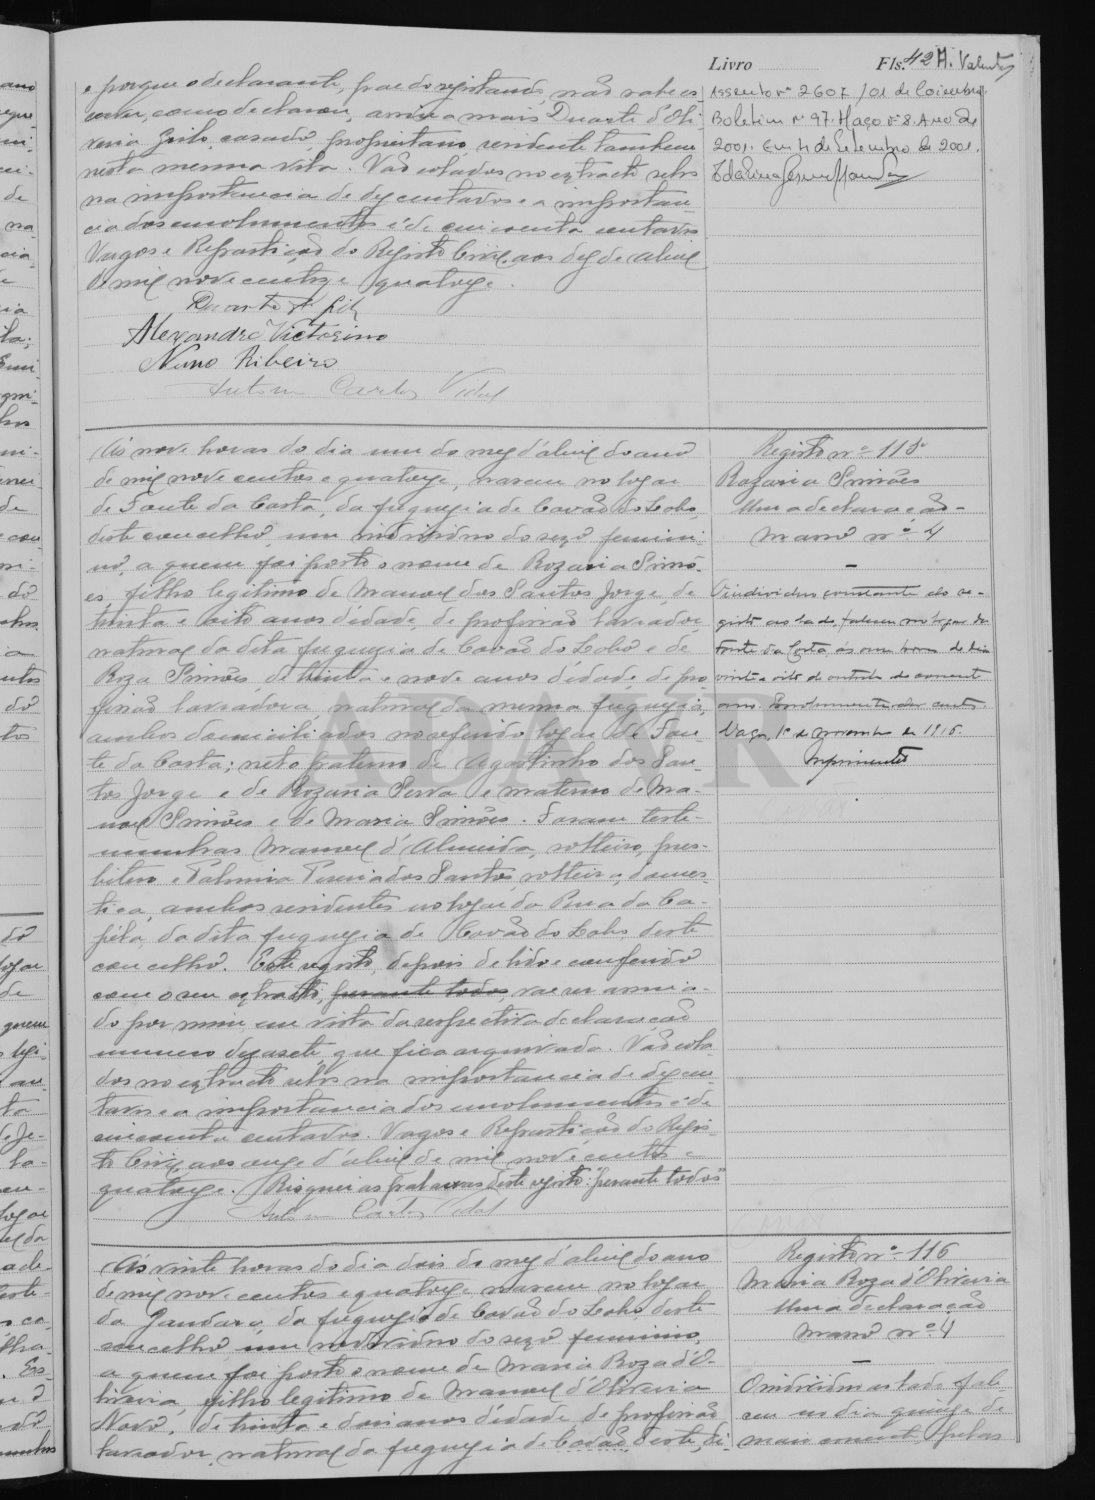 Livro Fls. 42 A. Valente
e porque o declarante, pae do registando, não sabe es-
crever, como declarou, assina mais Duarte d'Oli-
veira Grilo, casado, proprietario, residente tambem
nesta mesma vila. Vão colados no extracto selos
na importancia de dez centavos e a importan-
cia dos emolumentos é de cincoenta centavos
Vagos e Repartição do Registo Civil, aos dez de abril
de mil nove centos e quatorze.
Alexandre Victorino
Nuno Ribeiro
Antonio Carlos Vidal
Assento nº 2607/01 de Coimbra
Boletim nº 97. Maço nº 8. Ano de
2001. Em 4 de Setembro de 2001.
Ás nove horas do dia um do mez d'abril do ano
de mil nove centos e quatorze, nasceu no logar
de Fonte da Costa, da freguezia de Covão do Lobo,
deste concelho, um individuo do sexo femini-
no, a quem foi posto o nome de Rozaria Simõ-
es, filho legitimo de Manoel dos Santos Jorge, de
trinta e oito anos d'edade, de profissão lavrador,
natural da dita freguezia de Covão do Lobo e de
Roza Simões, de trinta e nove anos d'edade, de pro-
fissão lavradora, natural da mesma freguezia,
ambos domiciliados no referido logar de Fon-
te da Costa; neto paterno de Agostinho dos San-
tos Jorge e de Rozaria Serra e materno de Ma-
noel Simões e de Maria Simões. Foram teste-
munhas Manoel d'Almeida, solteiro, pres-
bitero e Palmira dos Santos, solteira, domes-
tica, ambos residentes no logar da Rua da Ca-
pela, da dita freguezia de Covão do Lobo, deste
concelho. Este registo, depois de lido e conferido
com o seu extracto, perante todos, vae ser assina-
do por mim em vista da respectiva declaração
numero dezasete, que fica arquivada. Vão cola-
dos no extracto selos na importancia de dez cen-
tavos e a importancia dos emolumentos é de
cincoenta centavos. Vagos e Repartição do Regis-
to Civil, aos onze d'abril de mil nove centos e
quatorze. Risquei as palavras deste registo: "perante todos"
Antonio Carlos Vidal
Registo nº 115
Rozaria Simões
Uma declaração
Maço nº 4
O individuo constante do re-
gisto ao lado, faleceu no logar da
Fonte da Costa, ás onze horas do dia
vinte e oito de outubro do corrente
ano.
Vagos, 1º de novembro de 1916.
ADAVR
Ás vinte horas do dia dois do mez d'abril do ano
de mil nove centos e quatorze nasceu no logar
da Gandara, da freguezia de Covão do Lobo, deste
concelho, um individuo do sexo feminino,
a quem foi posto o nome de Maria Roza d'O-
liveira, filho legitimo de Manoel d'Oliveira
Novo, de trinta e dois anos d'edade, de profissão
lavrador, natural da freguezia de Covão, deste di-
Registo nº 116
Maria Roza d'Oliveira
Uma declaração
Maço nº 4
O individuo ao lado fale-
ceu no dia quinze de
maio corrente, pelas